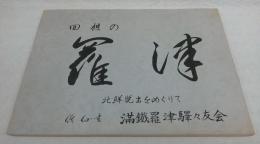 回想の
羅津
北鮮脱出をめぐりて
満鐵羅津驛々友会